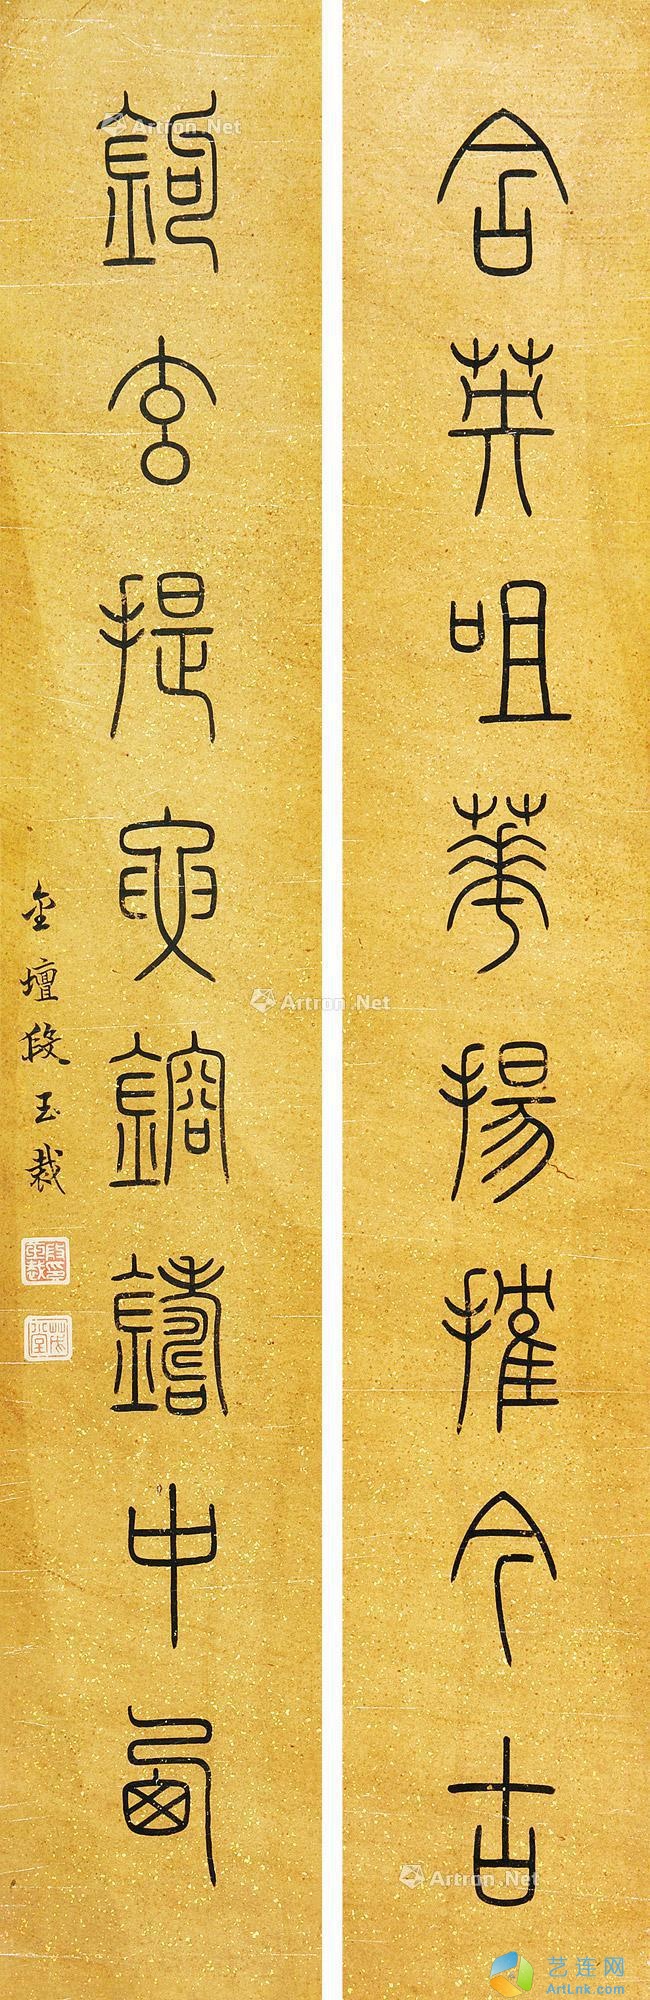 含英咀華揚搉今古
鉤玄提要鎔鑄中西
金壇段玉裁
Artron.Net
Artron.Net
Artron.Net
艺连网
ArtLnk.com